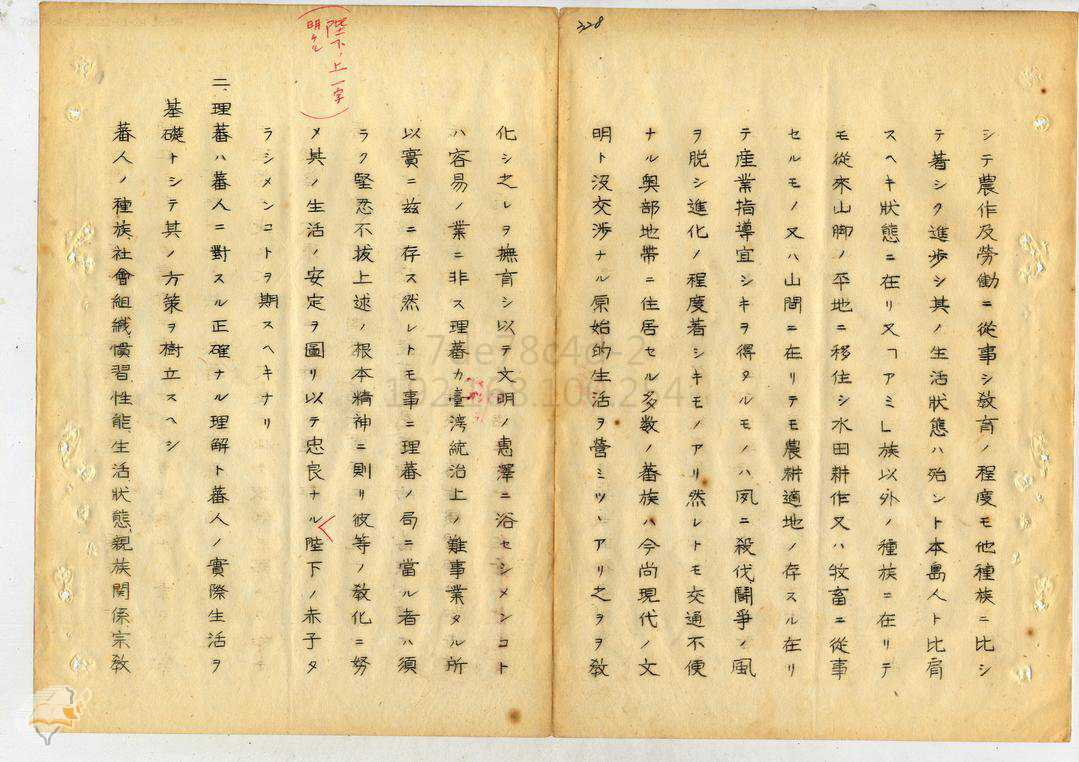 228
シテ農作及勞働ニ從事シ敎育ノ程度モ他種族ニ比シ
テ著シク進歩シ其ノ生活狀態ハ殆ント本島人ト比肩
スヘキ狀態ニ在リ又「アミ」族以外ノ種族ニ在リテ
モ從來山脚ノ平地ニ移住シ水田耕作又ハ牧畜ニ從事
セルモノ又ハ山間ニ在リテモ農耕適地ノ存スル在リ
テ産業指導宜シキヲ得タルモノハ夙ニ殺伐鬪爭ノ風
ヲ脱シ進化ノ程度著シキモノアリ然レトモ交通不便
ナル奧部地帶ニ住居セル多数ノ蕃族ハ今尚現代ノ文
明ト沒交渉ナル原始的生活ヲ營ミツヽアリ之ヲヲ敎
化シ之レヲ撫育シ以テ文明ノ惠澤ニ浴セシメンコト
ハ容易ノ業ニ非ス理蕃カ臺湾統治上ノ難事業タル所
以實ニ玆ニ存ス然レトモ事ニ理蕃ノ局ニ當ル者ハ須
ラク堅忍不拔上述ノ根本精神ニ則リ彼等ノ敎化ニ努
メ其ノ生活ノ安定ヲ圖リ以テ忠良ナル陛下ノ赤子タ
ラシメンコトヲ期スヘキナリ
(陛下ノ上一字
明ケル)
二、理蕃ハ蕃人ニ對スル正確ナル理解ト蕃人ノ實際生活ヲ
基礎トシテ其ノ方策ヲ樹立スヘシ
蕃人ノ種族社會組織、慣習性能、生活狀態、親族關係宗敎
7ee78c4d-2
192.168.100.254